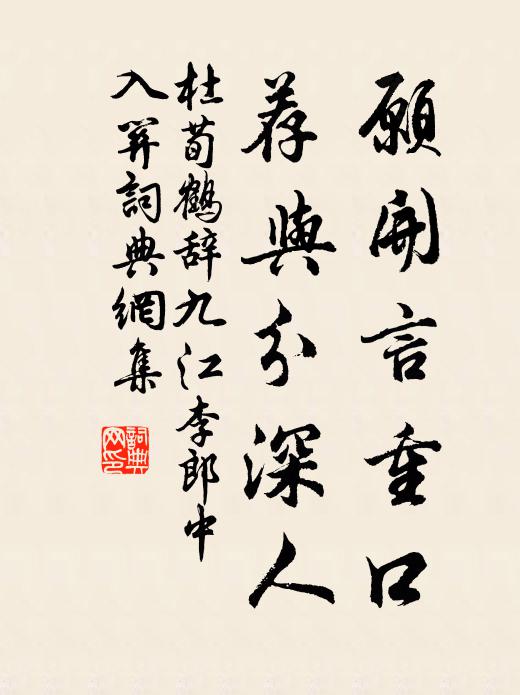 願開言重口
荐與分深人
杜荀鶴辞九江李郎中
入關詞典網集
詞典网印